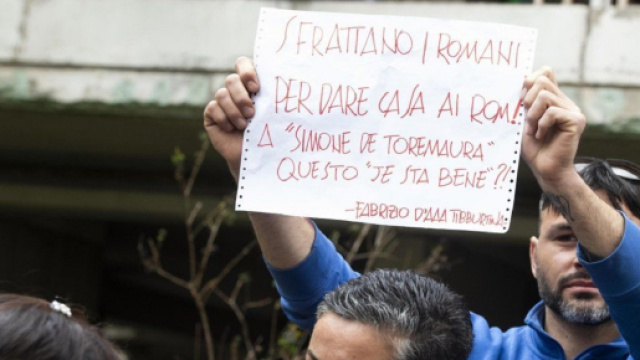 SFRATTANO I ROMANI
PER DARE CASA AI ROM!
A "SIMONE DE TOREMAURA"
QUESTO "JE STA BENE"?!
-FABRIZIO D'AAA TIBBURTINA